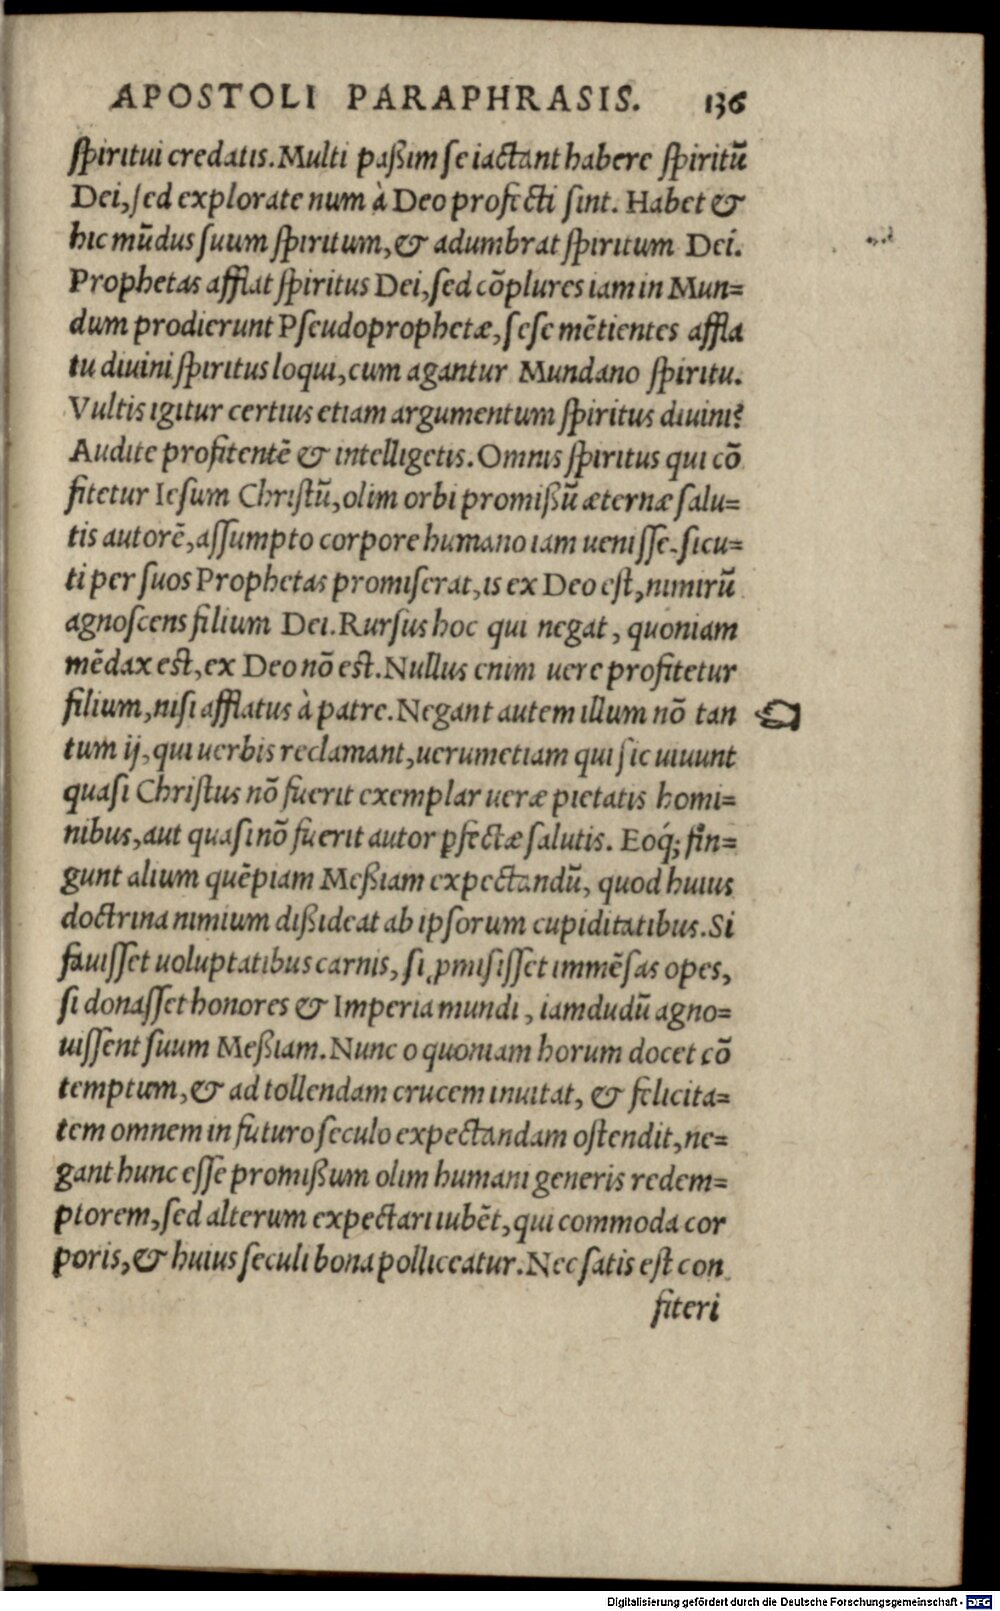 APOSTOLI PARAPHRASIS. 136
ſpiritui credatis. Multi paßim ſe iactant habere ſpiritū
Dei, ſed explorate num à Deo profecti ſint. Habet &
hic mūdus ſuum ſpiritum, & adumbrat ſpiritum Dei.
Prophetas afflat ſpiritus Dei, ſed cōplures iam in Mun=
dum prodierunt Pſeudoprophetæ, ſeſe mētientes affla
tu diuini ſpiritus loqui, cum agantur Mundano ſpiritu.
Vultis igitur certius etiam argumentum ſpiritus diuini?
Audite profitentē & intelligetis. Omnis ſpiritus qui cō
fitetur Ieſum Chriſtū, olim orbi promißū æternæ ſalu=
tis autorē, aſſumpto corpore humano iam ueniſſe. ſicu=
ti per ſuos Prophetas promiſerat, is ex Deo eſt, nimirū
agnoſcens filium Dei. Rurſus hoc qui negat, quoniam
mēdax eſt, ex Deo nō eſt. Nullus enim uere profitetur
filium, niſi afflatus à patre. Negant autem illum nō tan
tum ij, qui uerbis reclamant, uerumetiam qui ſic uiuunt
quaſi Chriſtus nō fuerit exemplar ueræ pietatis homi=
nibus, aut quaſi nō fuerit autor ꝑfectæ ſalutis. Eoq́; fin=
gunt alium quēpiam Meßiam expectandū, quod huius
doctrina nimium dißideat ab ipſorum cupiditatibus. Si
fauiſſet uoluptatibus carnis, ſi ꝓmiſiſſet immēſas opes,
ſi donaſſet honores & Imperia mundi, iamdudū agno=
uiſſent ſuum Meßiam. Nunc o quoniam horum docet cō
temptum, & ad tollendam crucem inuitat, & felicita=
tem omnem in futuro ſeculo expectandam oſtendit, ne=
gant hunc eſſe promißum olim humani generis redem=
ptorem, ſed alterum expectari iubēt, qui commoda cor
poris, & huius ſeculi bona polliceatur. Nec ſatis eſt con
fiteri
Digitalisierung gefördert durch die Deutsche Forschungsgemeinschaft - DFG